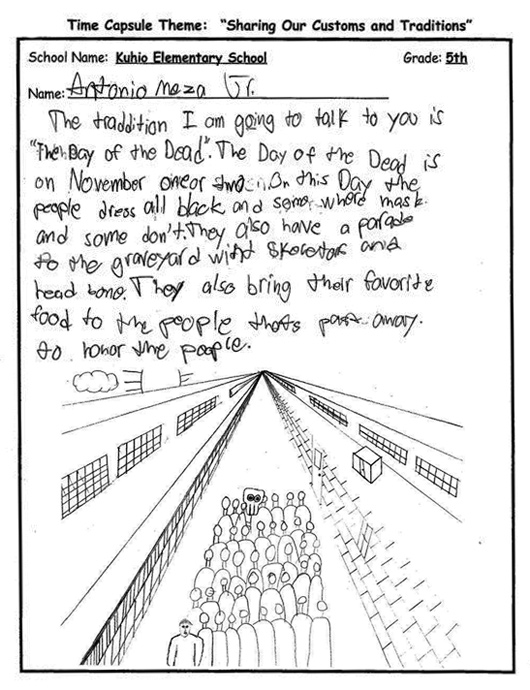 Time Capsule Theme: "Sharing Our Customs and Traditions"
School Name: Kuhio Elementary School Grade: 5th
Name: Antonio Meza Jr.
The traddition I am going to talk to you is
"The Day of the Dead". The Day of the Dead is
on November one or two. On this Day the
people dress all black and some where mask
and some don't. They also have a parade
to the graveyard with skeletons and
head bone. They also bring their favorite
food to the people thats past away.
to honor the people.